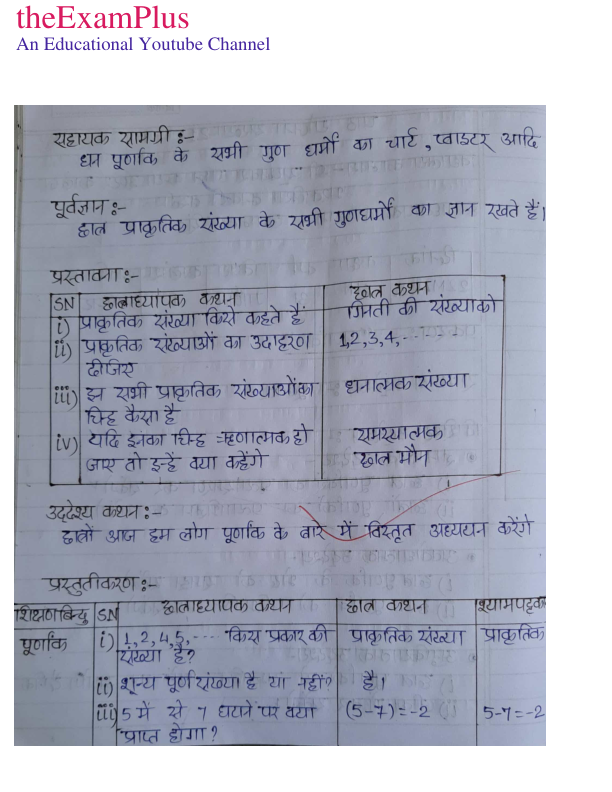 theExamPlus
An Educational Youtube Channel
सहायक सामग्री :-
धन पूर्णांक के सभी गुण धर्मों का चार्ट, प्वाइंटर आदि
पूर्वज्ञान :-
छात्र प्राकृतिक संख्या के सभी गुणधर्मों का ज्ञान रखते हैं।
प्रस्तावना :-
SN छात्राध्यापक कथन छात्र कथन
i) प्राकृतिक संख्या किसे कहते हैं गिनती की संख्या को
ii) प्राकृतिक संख्याओं का उदाहरण 1,2,3,4,------
दीजिए
iii) इन सभी प्राकृतिक संख्याओं का धनात्मक संख्या
चिन्ह कैसा है
iv) यदि इनका चिन्ह ऋणात्मक हो समस्यात्मक
जाए तो इन्हें क्या कहेंगे छात्र मौन
उद्देश्य कथन :-
छात्रों आज हम लोग पूर्णांक के बारे में विस्तृत अध्ययन करेंगे
प्रस्तुतीकरण :-
शिक्षणबिन्दु SN छात्राध्यापक कथन छात्र कथन श्यामपट्टक
पूर्णांक i) 1,2,4,5,---- किस प्रकार की प्राकृतिक संख्या प्राकृतिक
संख्या है?
ii) शून्य पूर्ण संख्या है या नहीं? है।
iii) 5 में से 7 घटाने पर क्या (5-7)=-2 5-7=-2
प्राप्त होगा?